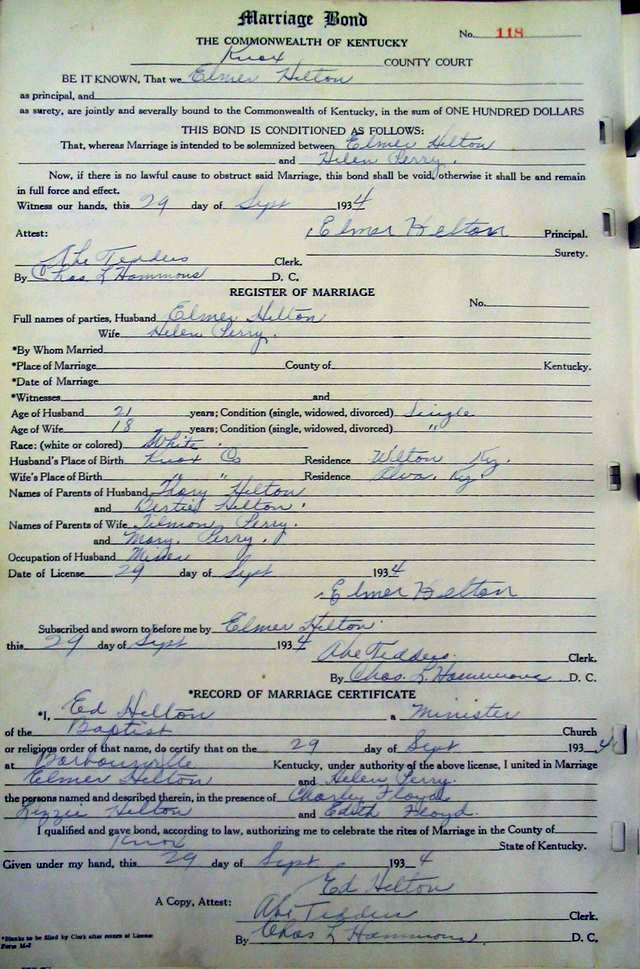 Marriage Bond
No. 118
THE COMMONWEALTH OF KENTUCKY
Knox COUNTY COURT
BE IT KNOWN, That we Elmer Hilton
as principal, and
as surety, are jointly and severally bound to the Commonwealth of Kentucky, in the sum of ONE HUNDRED DOLLARS
THIS BOND IS CONDITIONED AS FOLLOWS:
That, whereas Marriage is intended to be solemnized between Elmer Hilton
and Helen Perry.
Now, if there is no lawful cause to obstruct said Marriage, this bond shall be void, otherwise it shall be and remain
in full force and effect.
Witness our hands, this 29 day of Sept 1934
Attest: Elmer Helton Principal.
Abe Tedders Clerk. Surety.
By Chas L Hammons D. C.
REGISTER OF MARRIAGE
No.
Full names of parties, Husband Elmer Hilton
Wife Helen Perry.
*By Whom Married
*Place of Marriage County of Kentucky.
*Date of Marriage
*Witnesses and
Age of Husband 21 years; Condition (single, widowed, divorced) Single
Age of Wife 18 years; Condition (single, widowed, divorced) "
Race: (white or colored) White.
Husband's Place of Birth Knox Co Residence Wilton Ky.
Wife's Place of Birth " " Residence Alva. Ky.
Names of Parents of Husband Hilton
and Bertie Hilton.
Names of Parents of Wife Tilmon Perry.
and Mary. Perry.
Occupation of Husband Miner
Date of License 29 day of Sept 1934
Elmer Helton
Subscribed and sworn to before me by Elmer Hilton.
this 29 day of Sept 1934
Abe Tedders. Clerk.
By Chas. L. Hammons D. C.
*RECORD OF MARRIAGE CERTIFICATE
*I, Ed Hilton a Minister
of the Baptist Church
or religious order of that name, do certify that on the 29 day of Sept 1934
at Barbourville Kentucky, under authority of the above license, I united in Marriage
Elmer Hilton and Helen Perry.
the persons named and described therein, in the presence of Charley Floyd
Lizzie Hilton and Edith Floyd.
I qualified and gave bond, according to law, authorizing me to celebrate the rites of Marriage in the County of
Knox State of Kentucky.
Given under my hand, this 29 day of Sept 1934
Ed Hilton
A Copy, Attest: Abe Tedders Clerk.
By Chas L Hammons. D. C.
*Blanks to be filled by Clerk after return of License
Form M-7